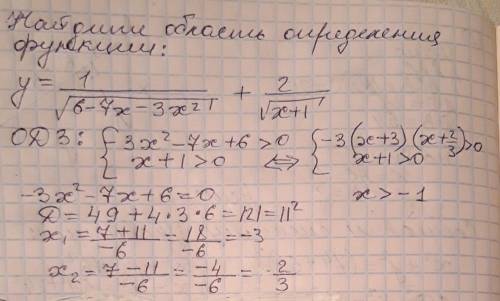 Найдити область определения
функции:
y = 1/√(6-7x-3x²) + 2/√(x+1)
ОДЗ: { 3x²-7x+6>0 ; x+1>0 ⇔ { -3(x+3)(x+2/3)>0 ; x+1>0
-3x²-7x+6=0 x>-1
D=49+4·3·6=121=11²
x₁=(7+11)/-6=18/-6=-3
x₂=(7-11)/-6=-4/-6=2/3